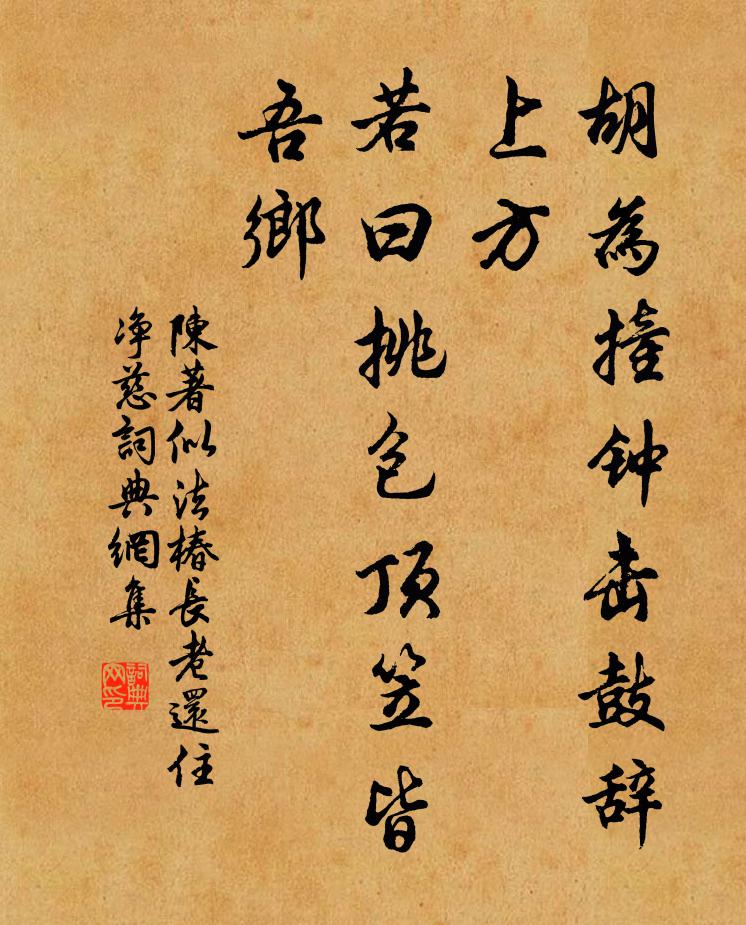 胡為撞钟击鼓辞
上方
若曰挑包顶笠皆
吾鄉
陳著似法椿長老還住
净慈詞典網集
詞典网印